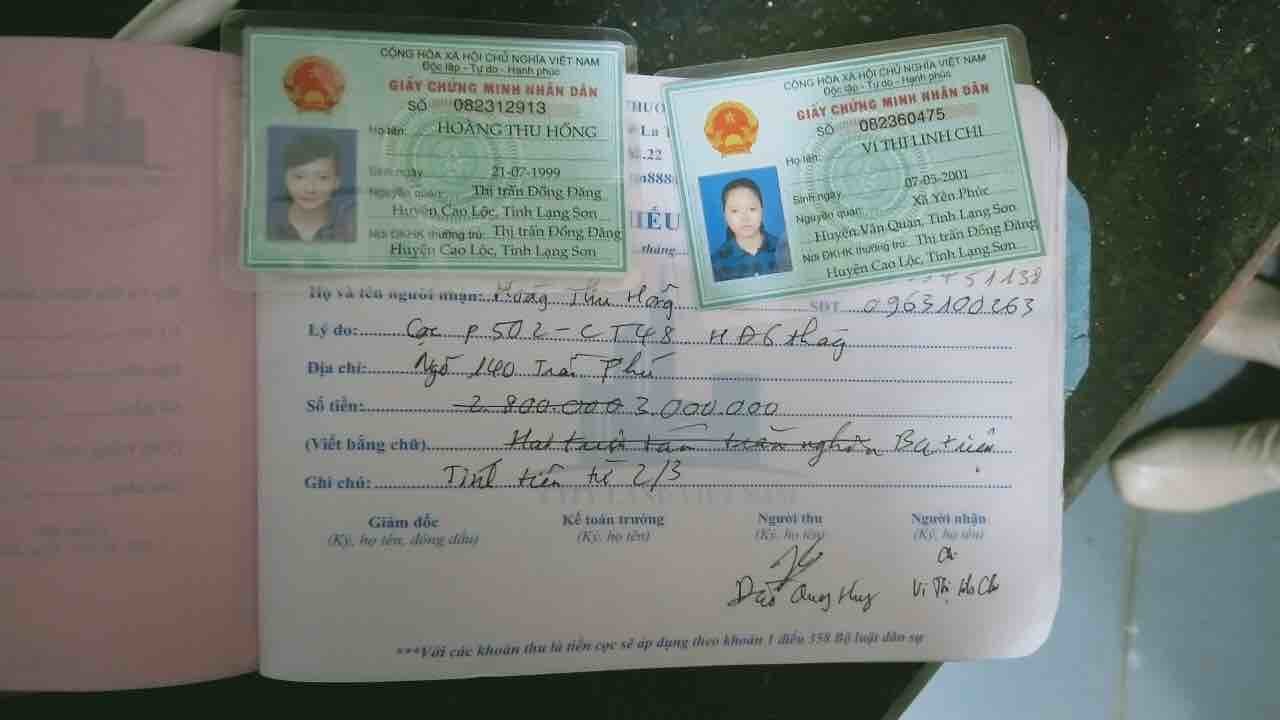 CỘNG HÒA XÃ HỘI CHỦ NGHĨA VIỆT NAM
Độc lập - Tự do - Hạnh phúc
GIẤY CHỨNG MINH NHÂN DÂN
SỐ 082312913
Họ tên: HOÀNG THU HỒNG
Sinh ngày 21-07-1999
Nguyên quán: Thị trấn Đồng Đăng
Huyện Cao Lộc, Tỉnh Lạng Sơn
Nơi ĐKHK thường trú: Thị trấn Đồng Đăng
Huyện Cao Lộc, Tỉnh Lạng Sơn
CỘNG HÒA XÃ HỘI CHỦ NGHĨA VIỆT NAM
Độc lập - Tự do - Hạnh phúc
GIẤY CHỨNG MINH NHÂN DÂN
SỐ 082360475
Họ tên: VI THỊ LINH CHI
Sinh ngày 07-05-2001
Nguyên quán: Xã Yên Phúc
Huyện Văn Quan, Tỉnh Lạng Sơn
Nơi ĐKHK thường trú: Thị trấn Đồng Đăng
Huyện Cao Lộc, Tỉnh Lạng Sơn
tháng
Họ và tên người nhận: Hoàng Thu Hồng SĐT 0963100263
Lý do: Cọc P502 - CT48 HĐ 6 tháng
Địa chỉ: Ngõ 140 Trần Phú
Số tiền: 2.800.000 3.000.000
(Viết bằng chữ) nghìn Ba triệu
Ghi chú: Tính tiền từ 2/3
Giám đốc Kế toán trưởng Người thu Người nhận
(Ký, họ tên, đóng dấu) (Ký, họ tên) (Ký, họ tên) (Ký, họ tên)
Chi
Quang Huy Vi Thị Chi
***Với các khoản thu là tiền cọc sẽ áp dụng theo khoản 1 điều 358 Bộ luật dân sự